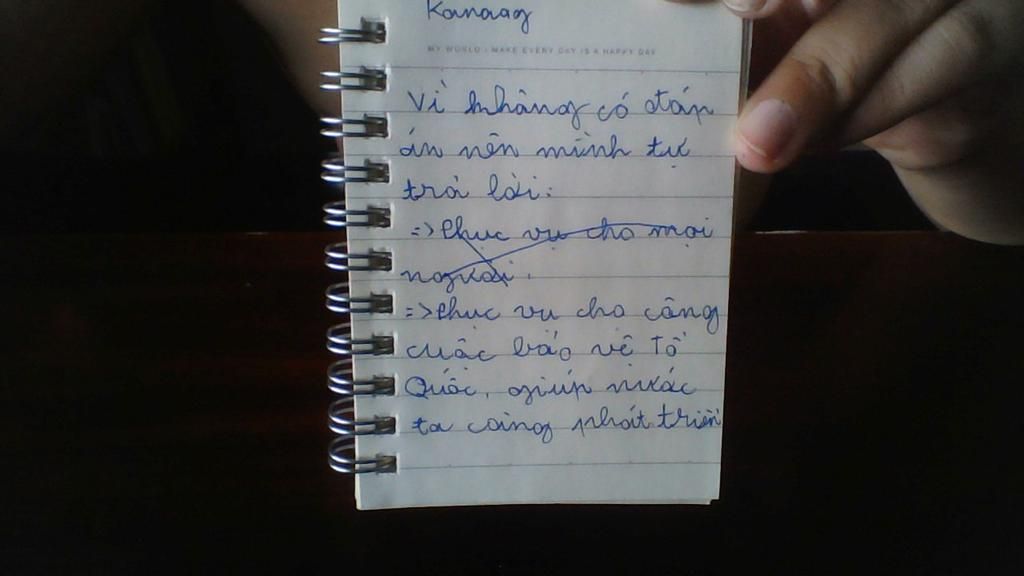 Kanaag
MY WORLD : MAKE EVERY DAY IS A HAPPY DAY
Vì không có đáp
án nên mình tự
trả lời:
=> phục vụ cho mọi
người.
=> phục vụ cho công
cuộc bảo vệ Tổ
Quốc, giúp nước
ta càng phát triển